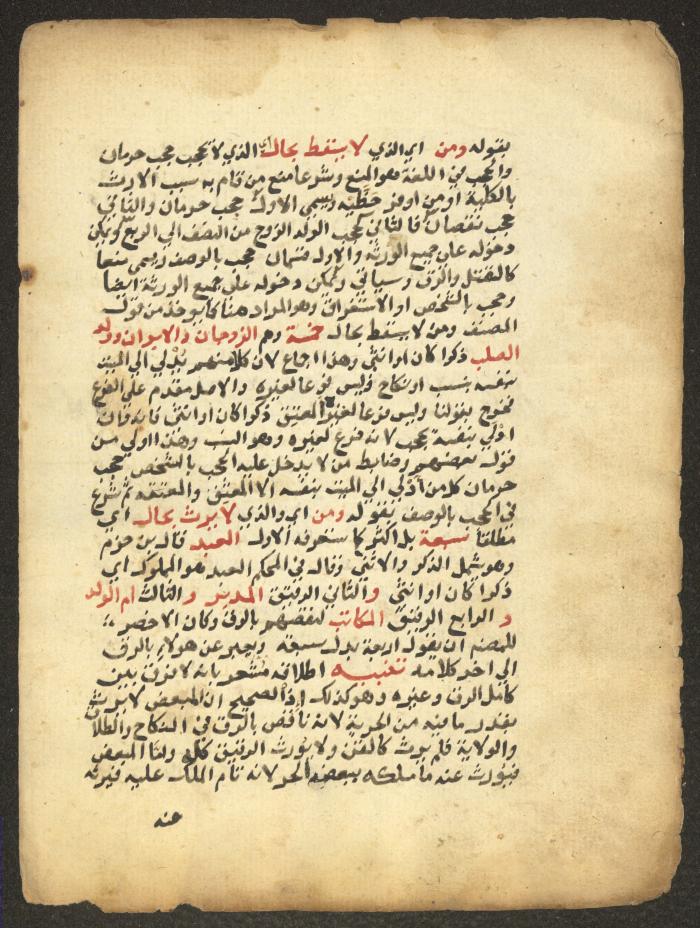 بقوله ومن اي الذي لا يسقط بحال اي الذي لا يحجب حجب حرمان
والحجب في اللغة هو المنع وشرعا منع من قام به سبب الارث
بالكلية او من اوفر حظيه ويسمى الاول حجب حرمان والثاني
حجب نقصان فالثاني كحجب الولد الزوج من النصف الي الربع ويمكن
دخوله على جميع الورثة والاول قسمان حجب بالوصف ويسمى منعا
كالقتل والرق وسياتي ويمكن دخوله على جميع الورثة ايضا
وحجب بالشخص او الاستغراق وهو المراد هنا كما يوخذ من قول
المصنف ومن لا يسقط بحال خمسة وهم الزوجان والابوان وولد
الصلب ذكرا كان او انثى وهذا اجماع لان كلا منهم يدلي الي الميت
بنفسه بنسب او نكاح وليس فرعا لغيره والاصل مقدم على الفرع
فخرج بقولنا وليس فرعا لغيره المعتق ذكرا كان او انثى فانه وان
ادلي بنفسه يحجب لانه فرع لغيره وهو النسب وهذا اولي من
قول بعضهم وضابط من لا يدخل عليه الحجب بالشخص حجب
حرمان كل من ادلي الي الميت بنفسه الا المعتق والمعتقه ثم شرع
في الحجب بالوصف بقوله ومن اي والذي لا يرث بحال اي
مطلقا سبعة بل اكثر كما ستعرفه الاول العبد قال بن حزم
وهو يشمل الذكر والانثى وقال في المحكم العبد هو المملوك اي
ذكرا كان او انثى والثاني الرقيق المدبر والثالث ام الولد
و الرابع الرقيق المكاتب لنقصهم بالرق وكان الاخصر
للمصنف ان يقول اربعة بدل سبعة ويعبر عن هولاء بالرق
الي اخر كلامه تنبيه اطلاقه مشعر بانه لا فرق بين
كامل الرق وغيره وهو كذلك اذ الصحيح ان المبعض لا يرث
بقدر ما فيه من الحرية لانه ناقص بالرق في النكاح والطلاق
والولاية فلم يرث كالقن ولا يورث الرقيق كله واما المبعض
فيورث عنه ما ملكه ببعضه الحر لانه تام الملك عليه فيرثه
عنه